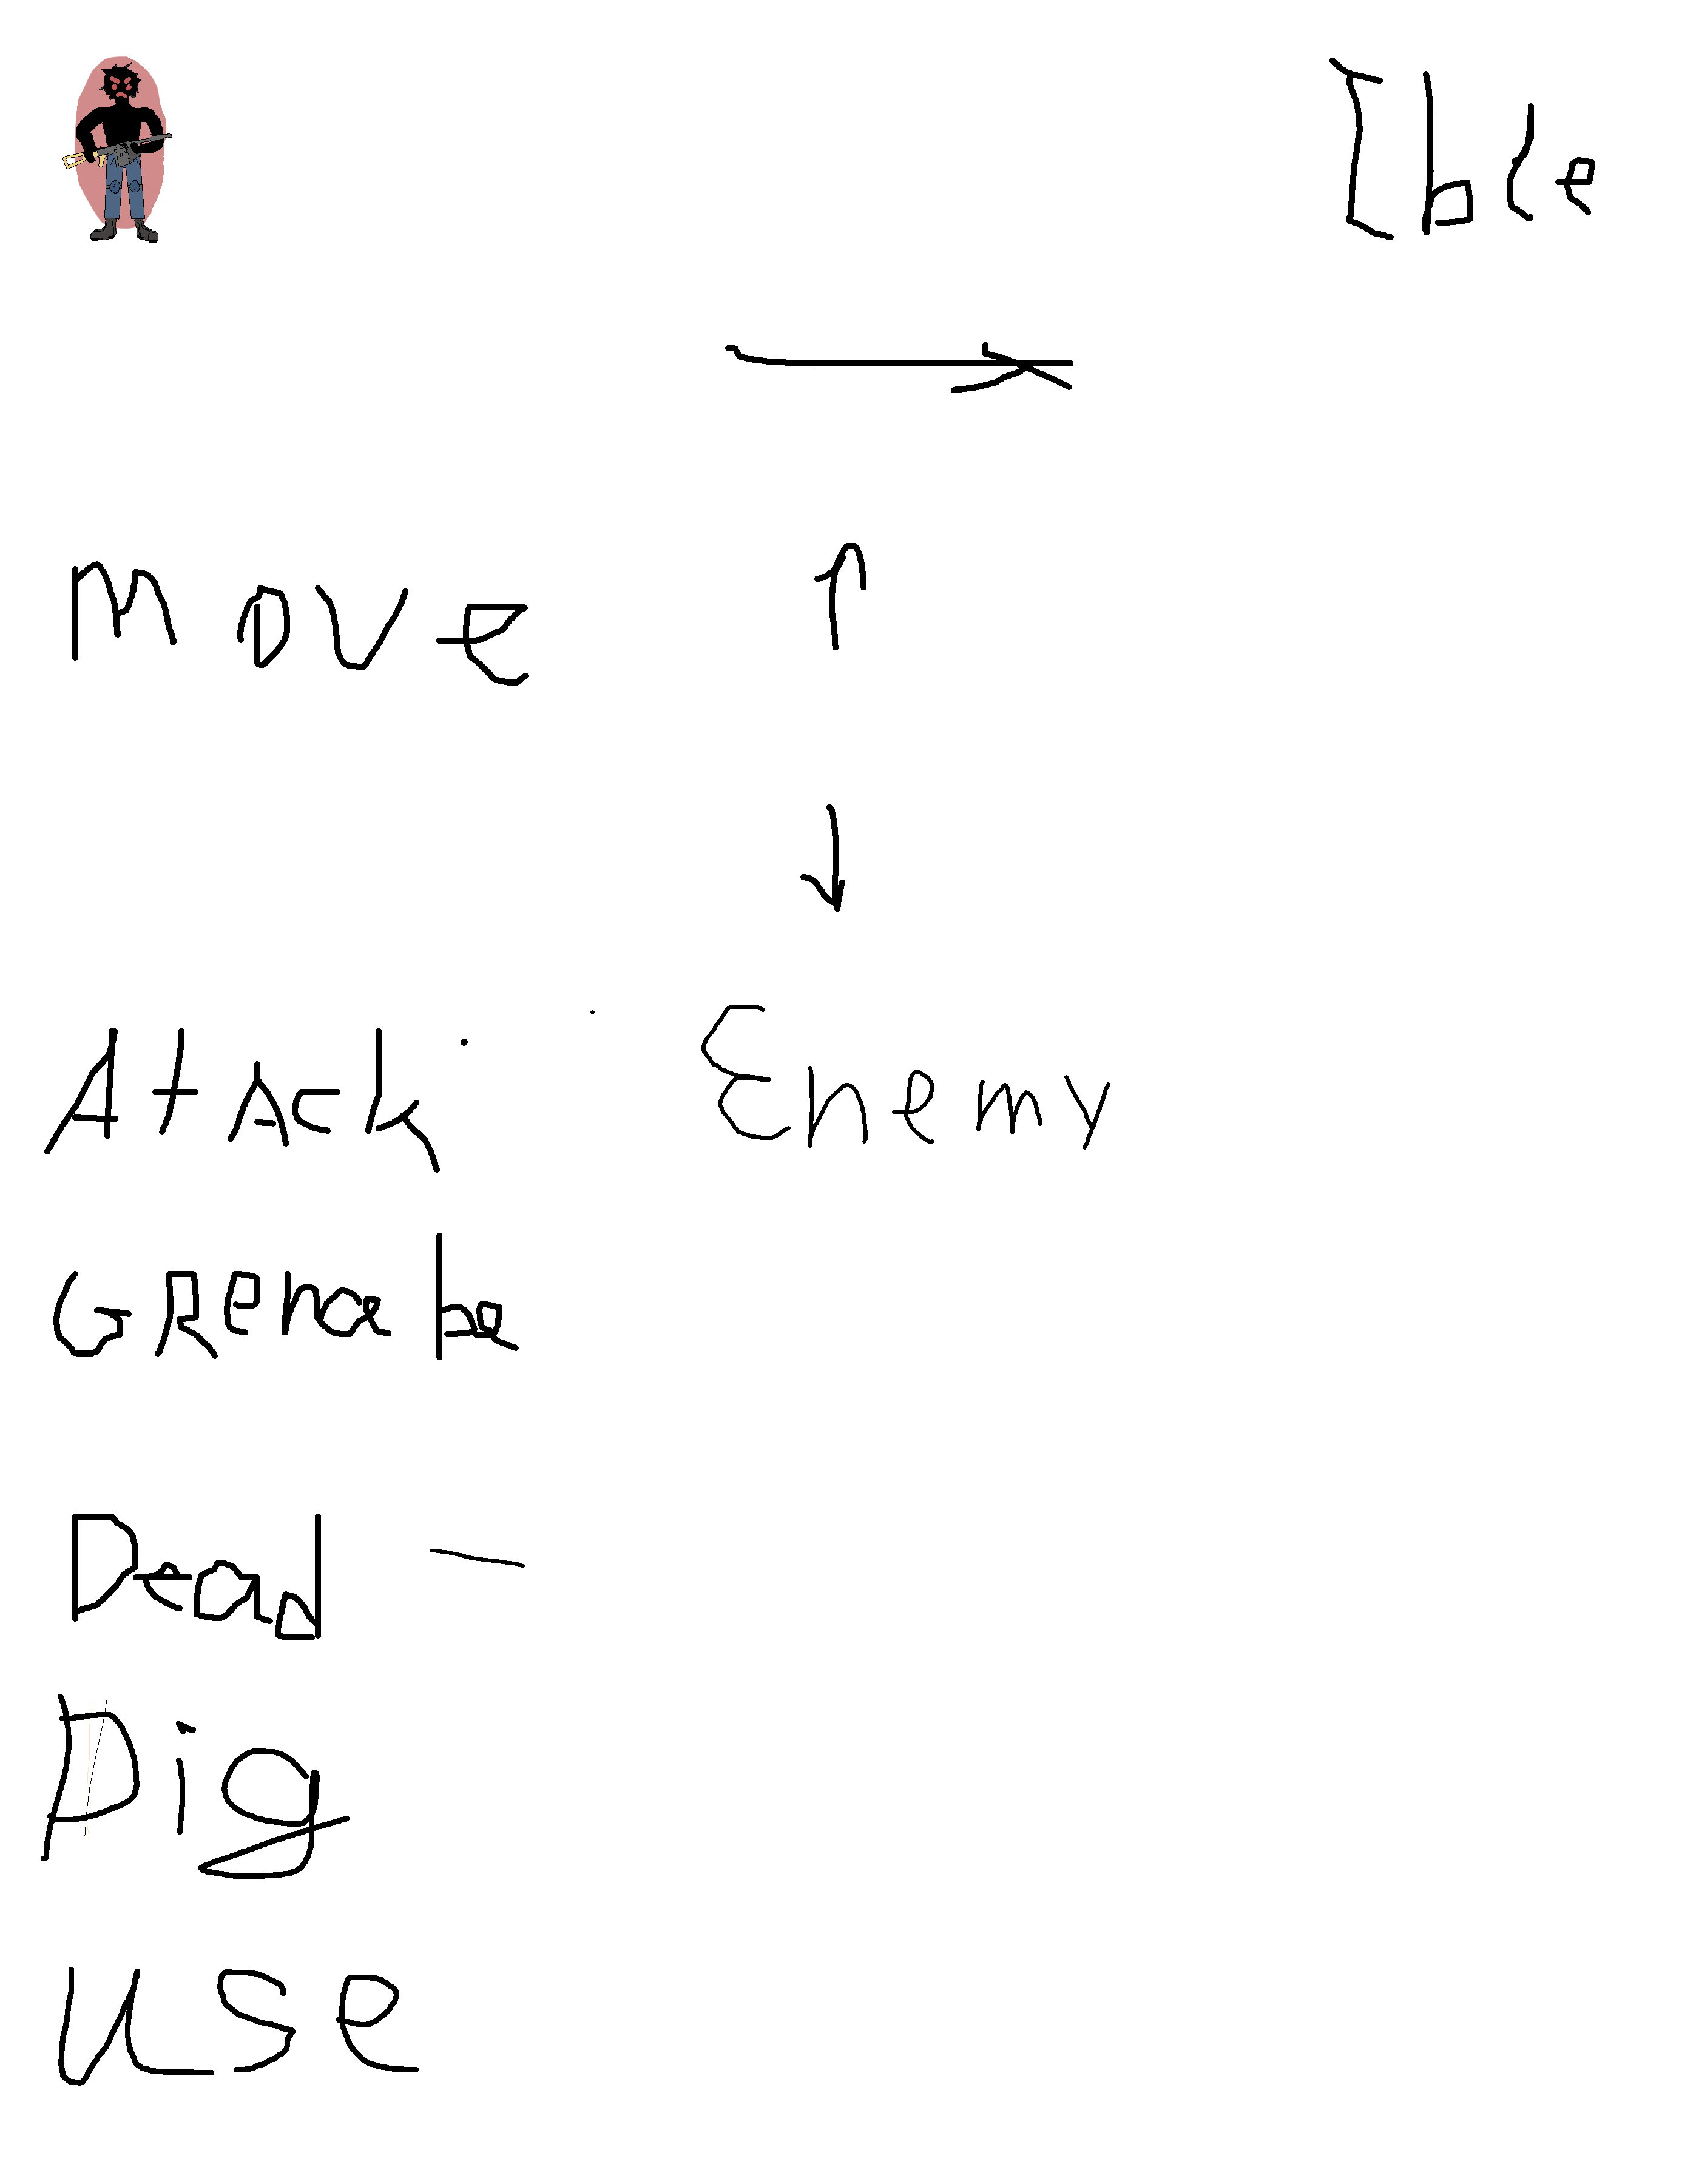 Ible
Move
Atack Enemy
GRenabe
Dead
Dig
Use